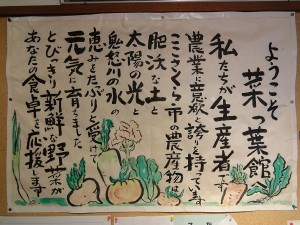 ようこそ
菜っ葉館へ
私たちが生産者です
農業に意欲と誇りを持っています
ここさくら市の農産物は
肥沃な土と
太陽の光と
鬼怒川の水の
恵みをたっぷりと受けて
元気に育ちました
とびっきり新鮮な野菜が
あなたの食卓を応援します